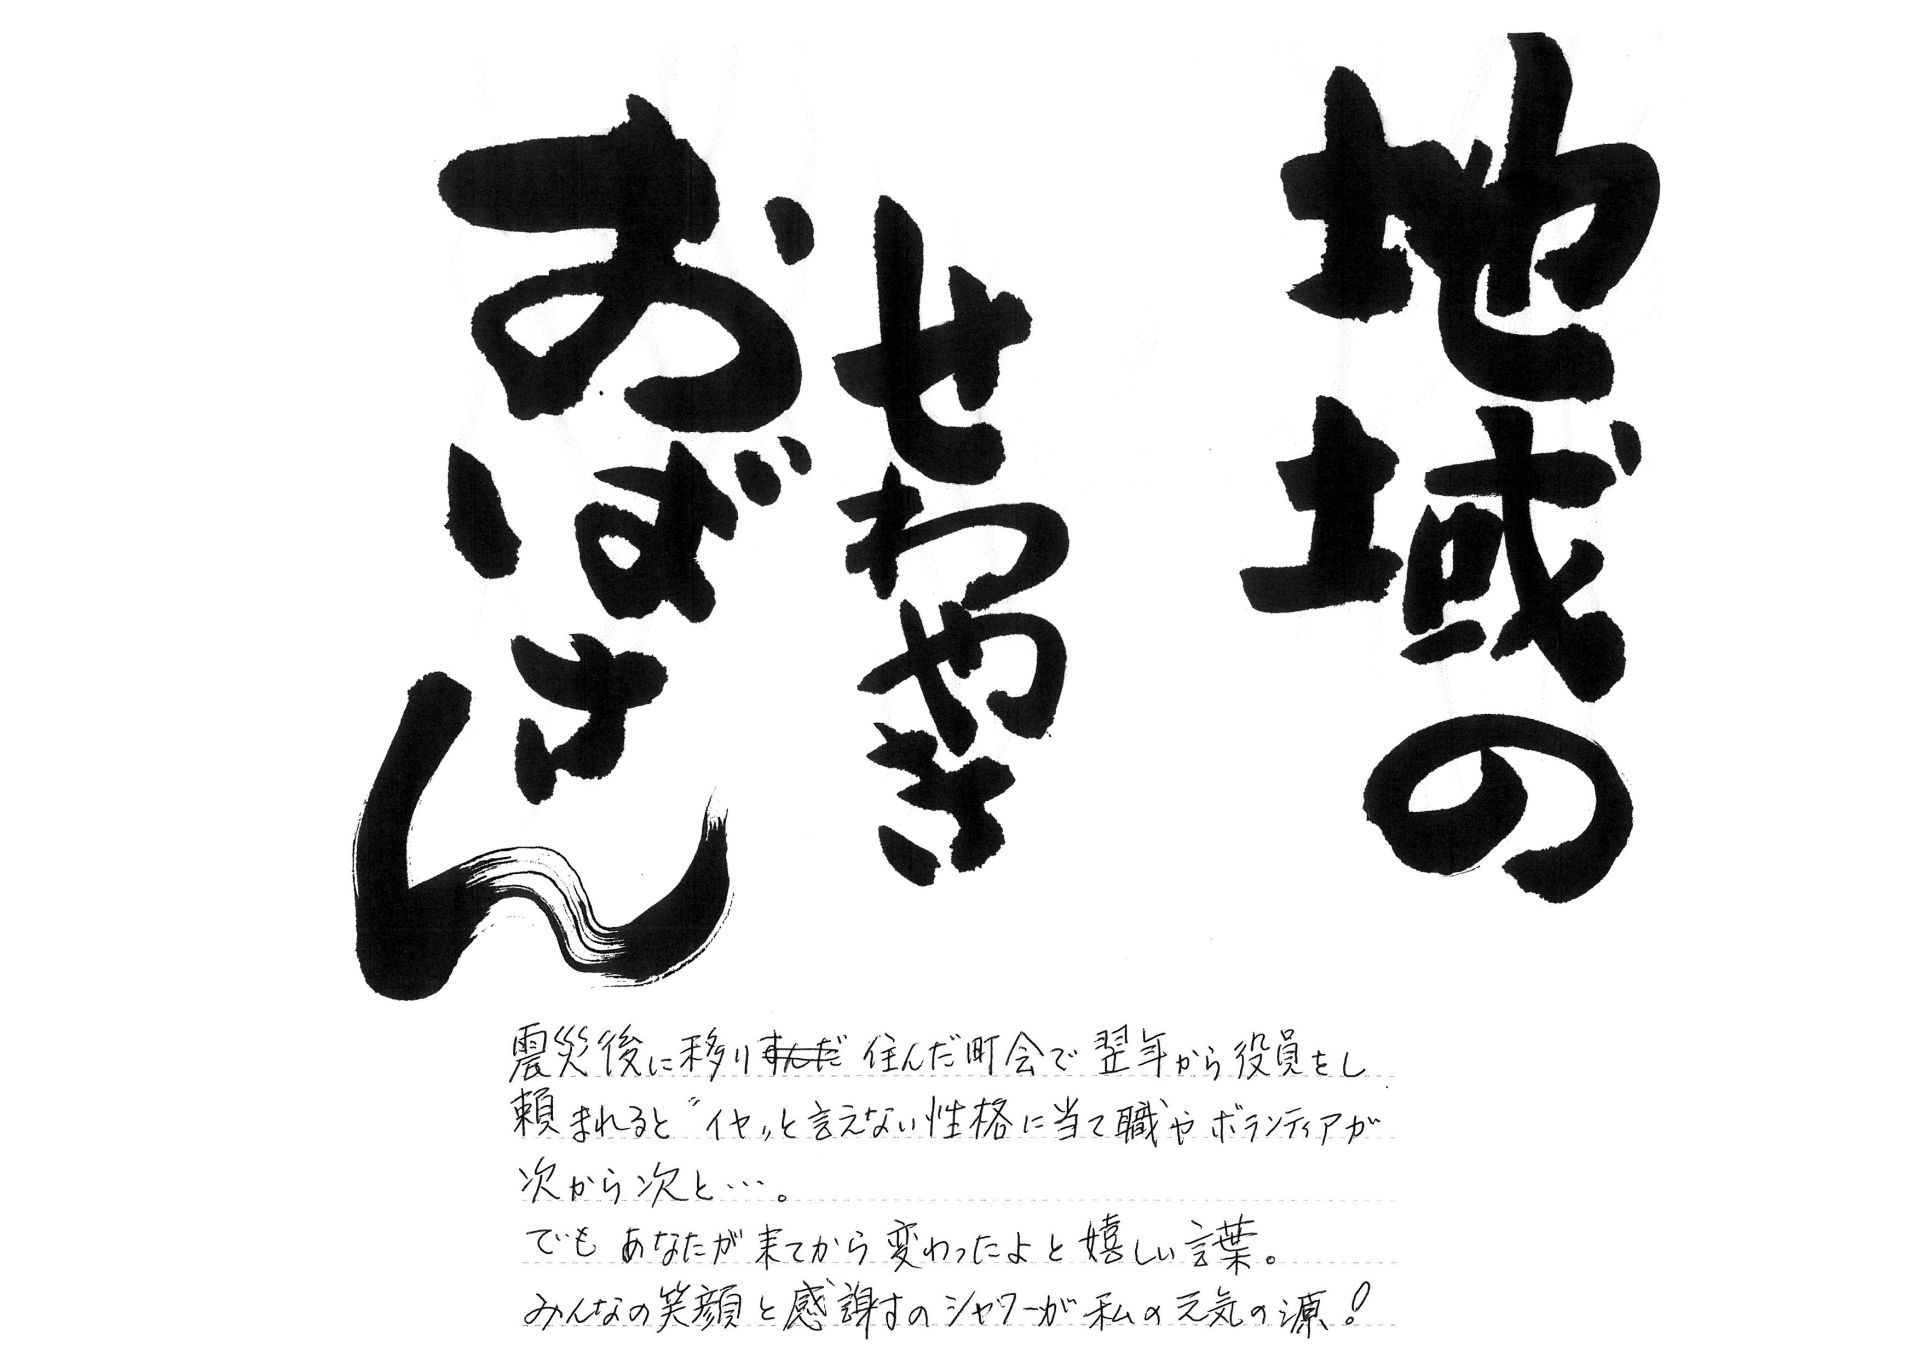 地域の
せわやき
おばさん
震災後に移り住んだ町会で翌年から役員をし
頼まれると〝イヤ〟と言えない性格に当て職やボランティアが
次から次と…。
でもあなたが来てから変わったよと嬉しい言葉。
みんなの笑顔と感謝のシャワーが私の元気の源!